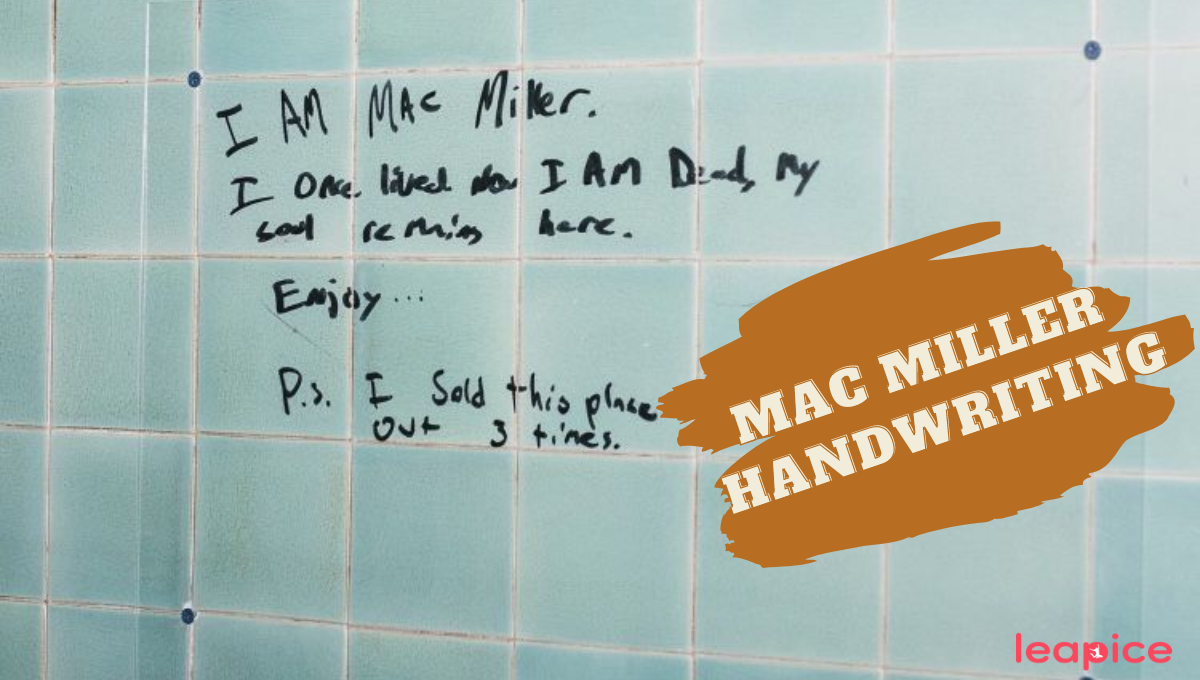 I AM MAC Miller.
I Once lived now I AM Dead, My
soul remains here.
Enjoy...
P.s. I Sold this place
out 3 times.
MAC MILLER
HANDWRITING
leapice